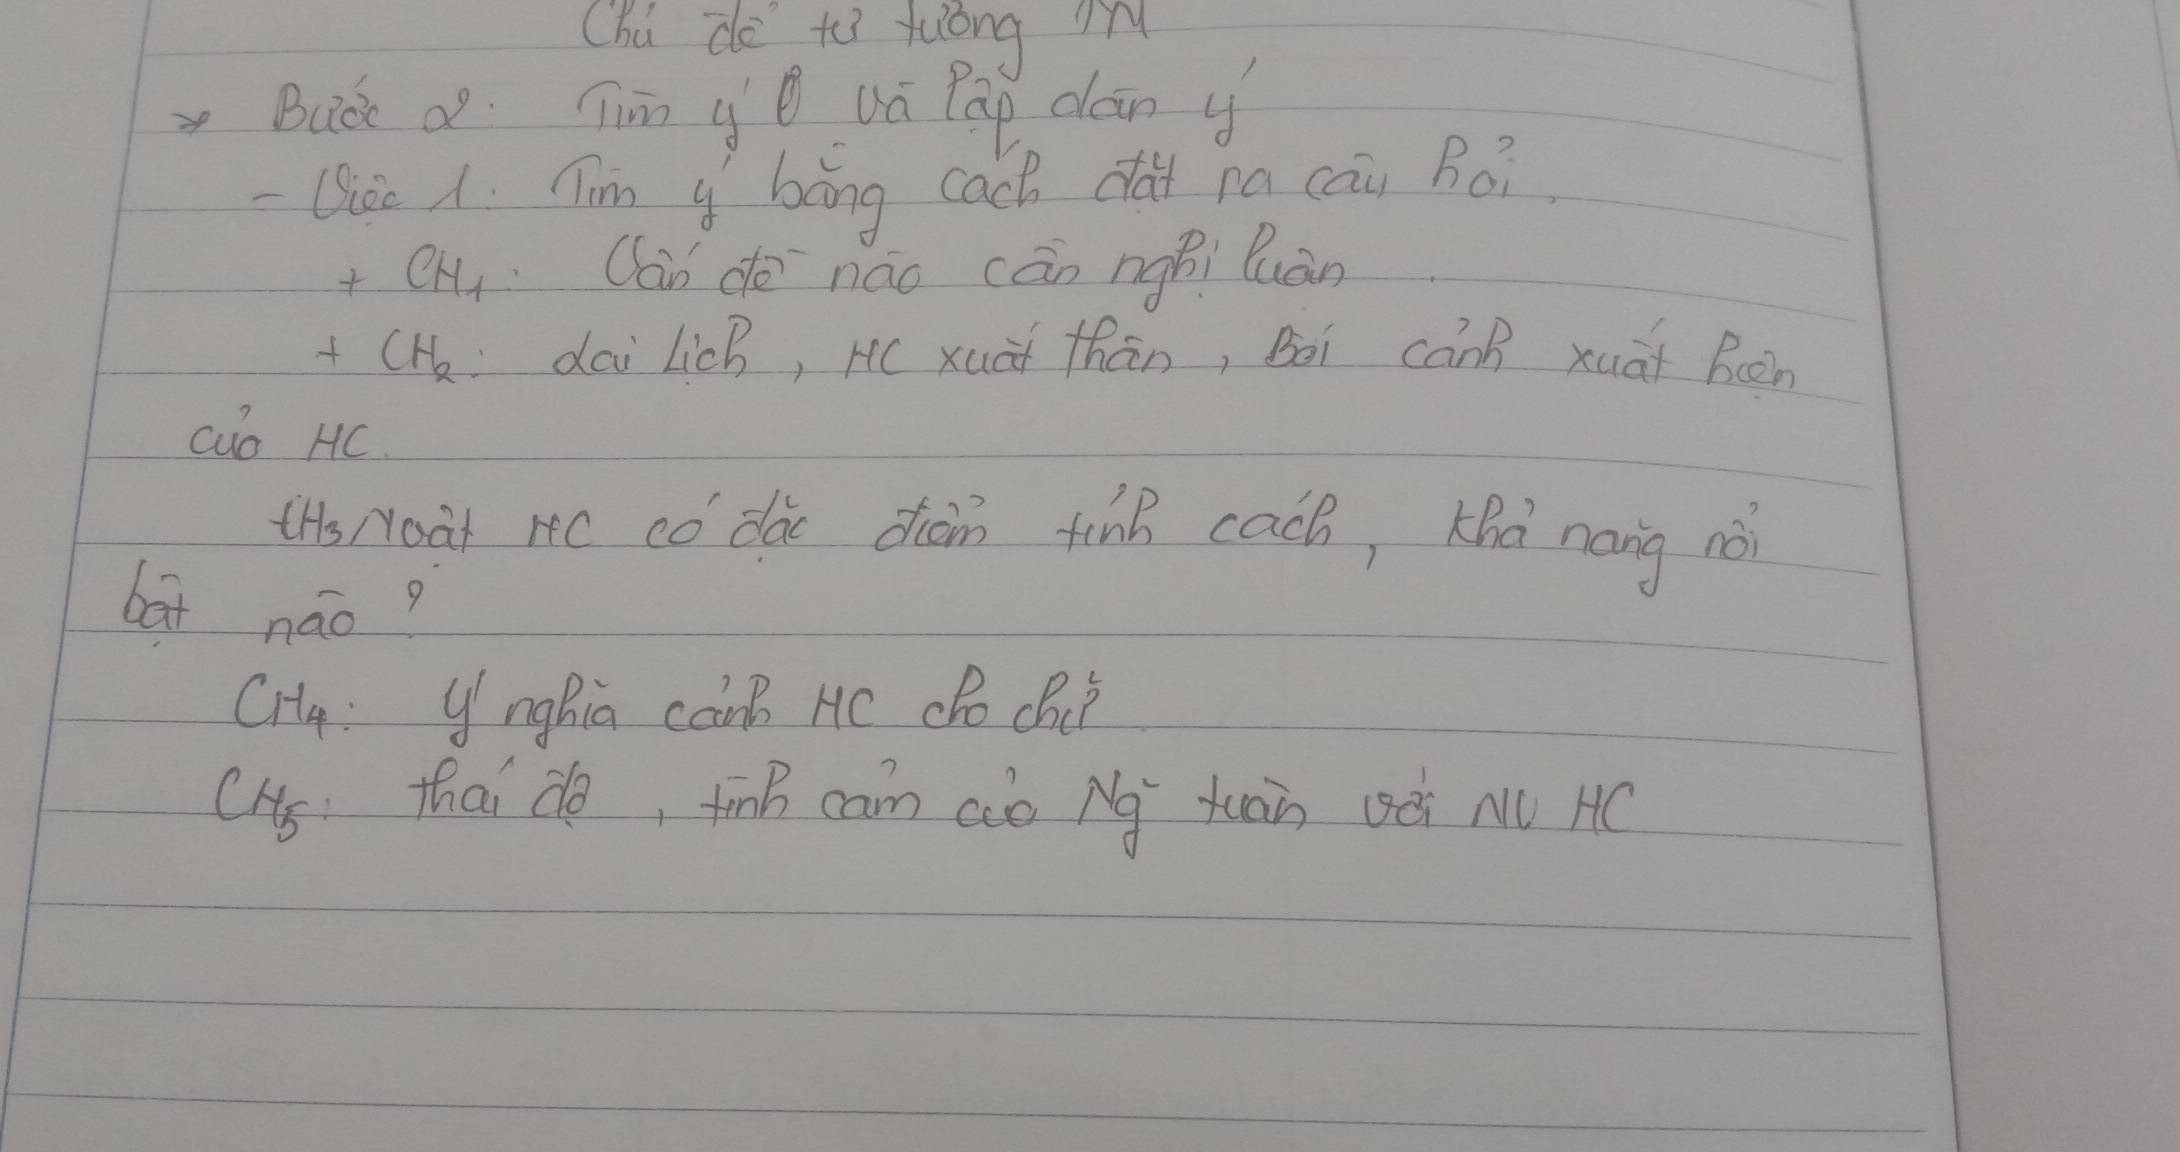 Chủ đề tư tưởng TN
* Bước 2: Tìm ý và lập dàn ý
- Việc 1: Tìm ý bằng cách đặt ra câu hỏi.
+ CH1: Vấn đề nào cần nghị luận
+ CH2: lai lịch, HC xuất thân, Bối cảnh xuất hiện
của HC.
CH3 HC có đặc điểm tính cách, khả năng nổi
bật nào?
CH4: Ý nghĩa cảnh HC cho chữ
CH5: thái độ, tình cảm của Ng tuân với NV HC